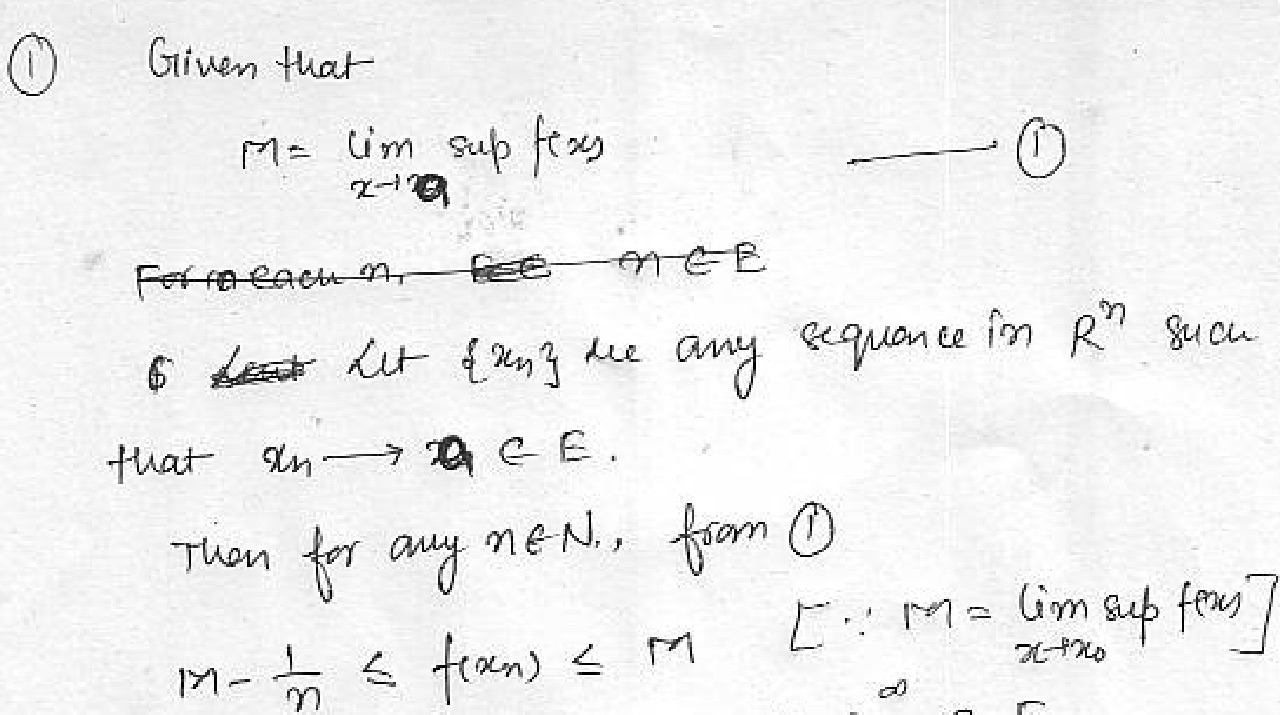 ① Given that
M = lim sup f(x) —— ①
x→a
For each n, n ∈ E
Let {xn} be any sequence in R^n such
that xn → a ∈ E.
Then for any n ∈ N., from ①
M - 1/n ≤ f(xn) ≤ M [∵ M = lim sup f(x)]
x→x₀
∞